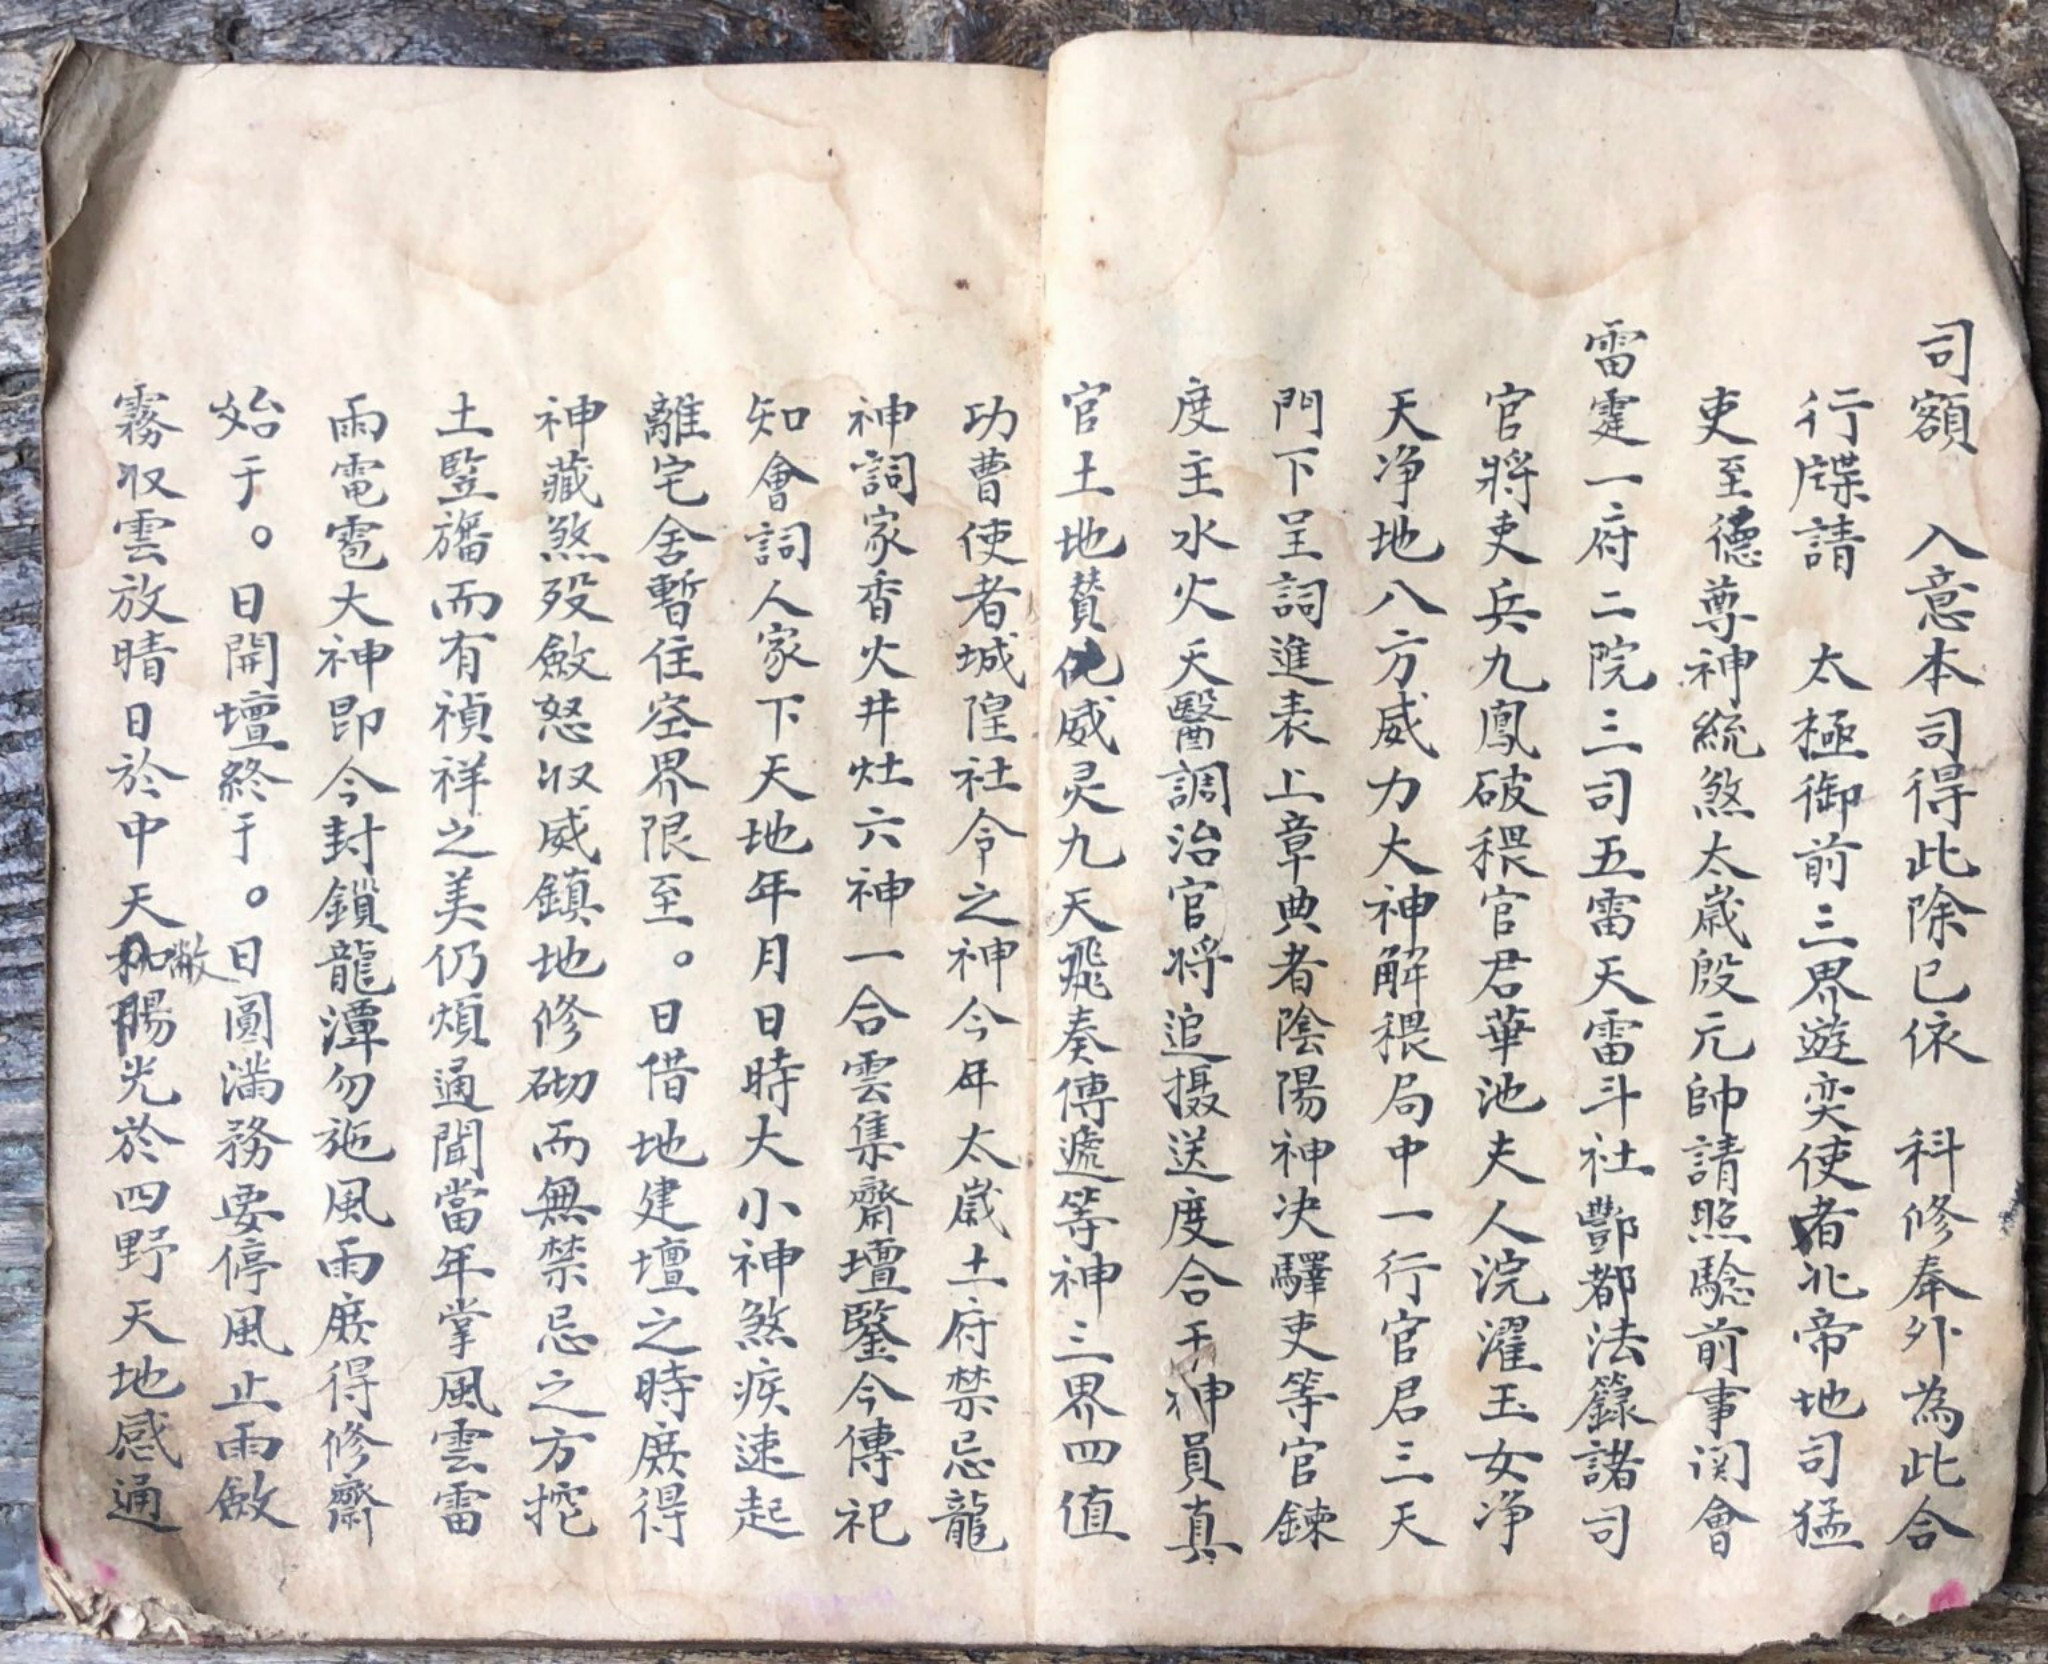 司額　入意本司得此除已依　科修奉外為此合
行牒請　太極御前三界遊奕使者北帝地司猛
吏至德尊神統煞太歲殷元帥請照驗前事関會
雷霆一府二院三司五雷天雷斗社酆都法籙諸司
官將吏兵九鳳破穢官君華池夫人浣濯玉女净
天净地八方威力大神解穢局中一行官君三天
門下呈詞進表上章典者陰陽神决驛吏等官鍊
度主水火天醫調治官将追摄送度合干神員真
官土地賛化威灵九天飛奏傳遞等神三界四值
功曹使者城隍社令之神今年太歲土府禁忌龍
神詞家香火井灶六神一合雲集齋壇鑒今傳祀
知會詞人家下天地年月日時大小神煞疾速起
離宅舍暫住空界限至。日借地建壇之時庻得
神藏煞殁斂怒収威鎮地修砌而無禁忌之方挖
土竪旛而有禎祥之美仍煩通聞當年掌風雲雷
雨電雹大神即今封鎖龍潭勿施風雨庻得修齋
始于。日開壇終于。日圓滿務要停風止雨斂
霧収雲放晴日於中天敝陽光於四野天地感通